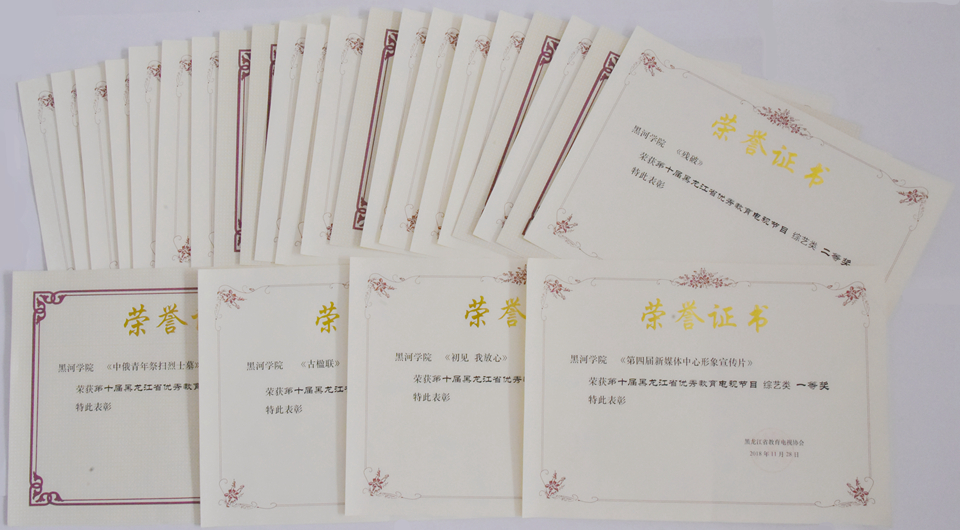 荣誉证书
黑河学院 《残破》
荣获第十届黑龙江省优秀教育电视节目 综艺类 二等奖
特此表彰
荣誉
黑河学院 《中俄青年祭扫烈士墓》
荣获第十届黑龙江省优秀教育
特此表彰
荣
黑河学院 《古楹联》
荣获第十届黑龙江
特此表彰
荣誉
黑河学院 《初见 我放心》
荣获第十届黑龙江省优秀
特此表彰
荣誉证书
黑河学院 《第四届新媒体中心形象宣传片》
荣获第十届黑龙江省优秀教育电视节目 综艺类 一等奖
特此表彰
黑龙江省教育电视协会
2018年11月28日